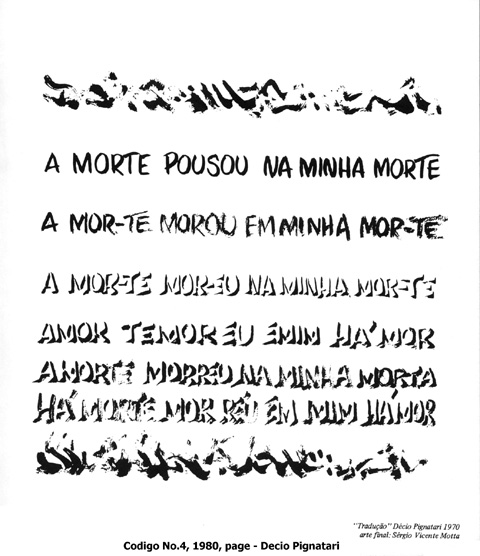 A MORTE POUSOU NA MINHA MORTE
A MOR-TE MOROU EM MINHA MOR-TE
A MOR-TE MOR-EU NA MINHA MOR-TE
AMOR TEMOR EU EMIM HÁ MOR
AMORTE MORREU NA MINHA MORTA
HÁ MORTE MOR RÉU EM MIM HÁMOR
"Tradução" Décio Pignatari 1970
arte final: Sérgio Vicente Motta
Codigo No.4, 1980, page - Decio Pignatari